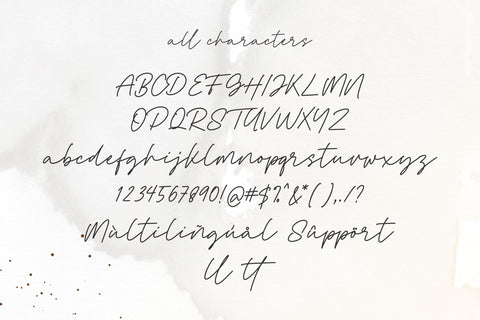 all characters
ABCDEFGHIJKLMN
OPQRSTUVWXYZ
abcdefghijklmnopqrstuvwxyz
1234567890!@#$%^&*(),./?
Mùltiliñgúál Sûppört